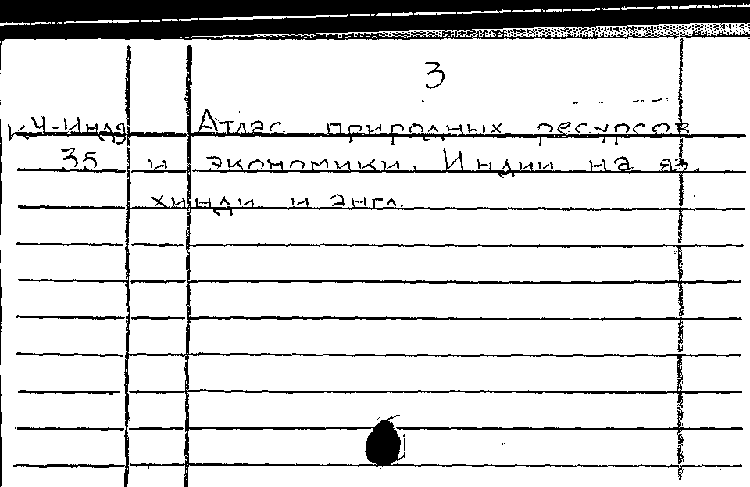 3
К Ч-Индя Атлас природных ресурсов
35 и экономики. Индии на яз.
хинди и англ.